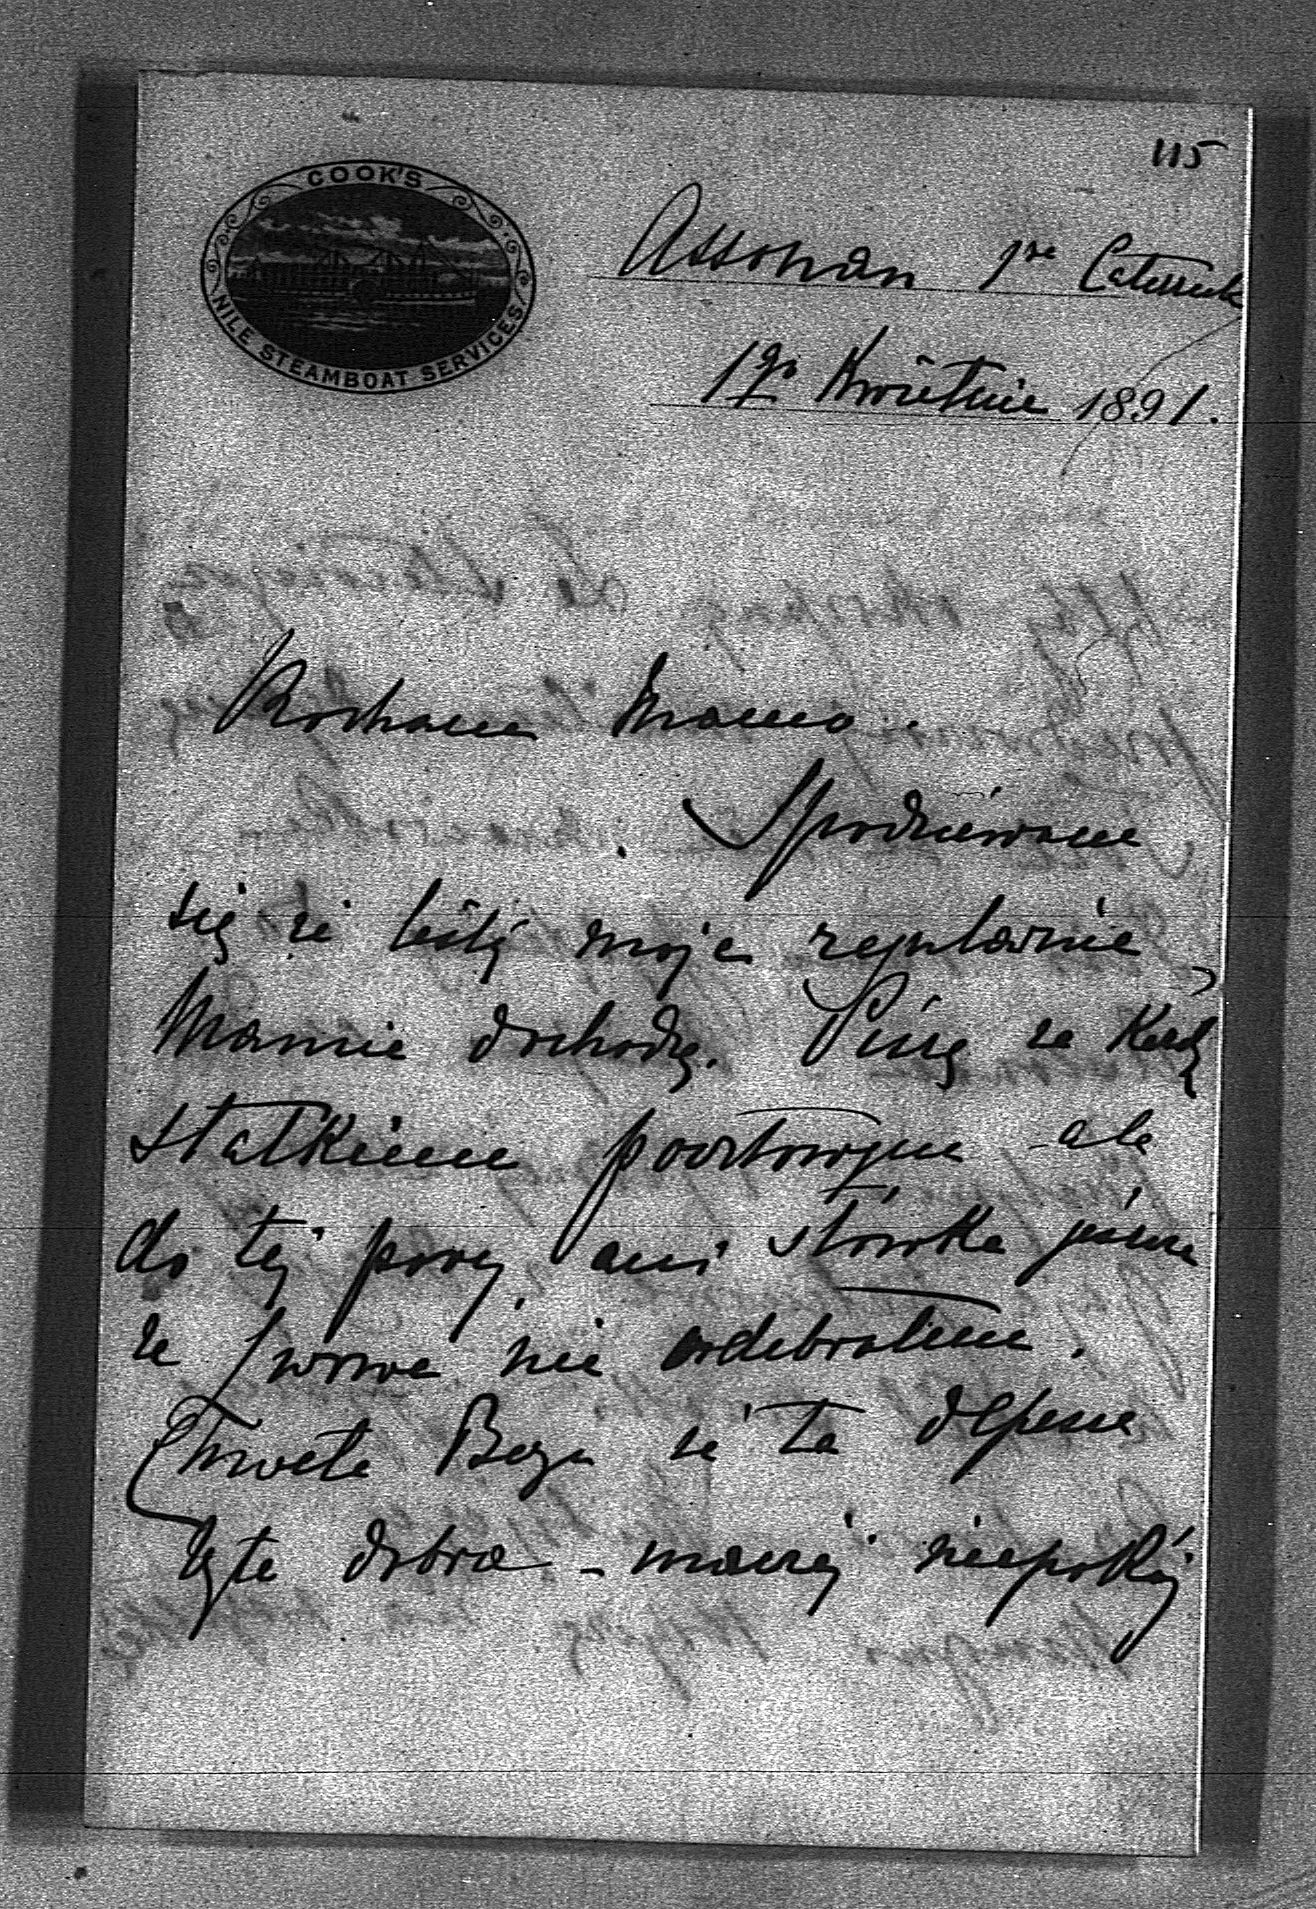 115
COOK'S
NILE STEAMBOAT SERVICES
Assouan 1re Cataracte
1go Kwietnia 1891.
Kochana Mamo.
Spodziewam
się że listy moje regularnie
Mamie dochodzą. Piszę za każdą
statkiem pocztowym ale
do tej pory ani słówka jeszcze
ze Lwowa nie odebrałem.
Chwała Bogu że ta depesza
była dobra - inaczej niepokój